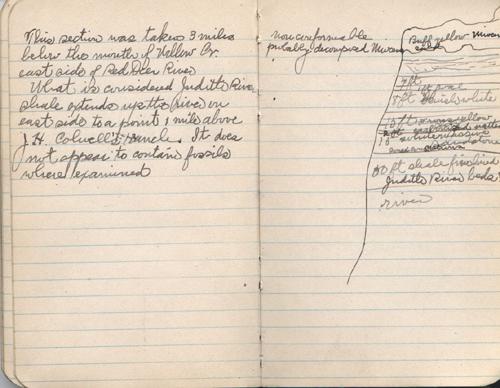 This section was taken 3 miles
below the mouth of Willow Cr.
east side of Red Deer River
What is considered Judith River
shale extends up the River on
east side to a point 1 mile above
J.H. Colwell's Ranch. It does
not appear to contain fossils
where examined
non conformable
probably decomposed
Buff yellow
7 ft
8 ft white
10 ft yellow
80 ft shale
Judith River beds
river